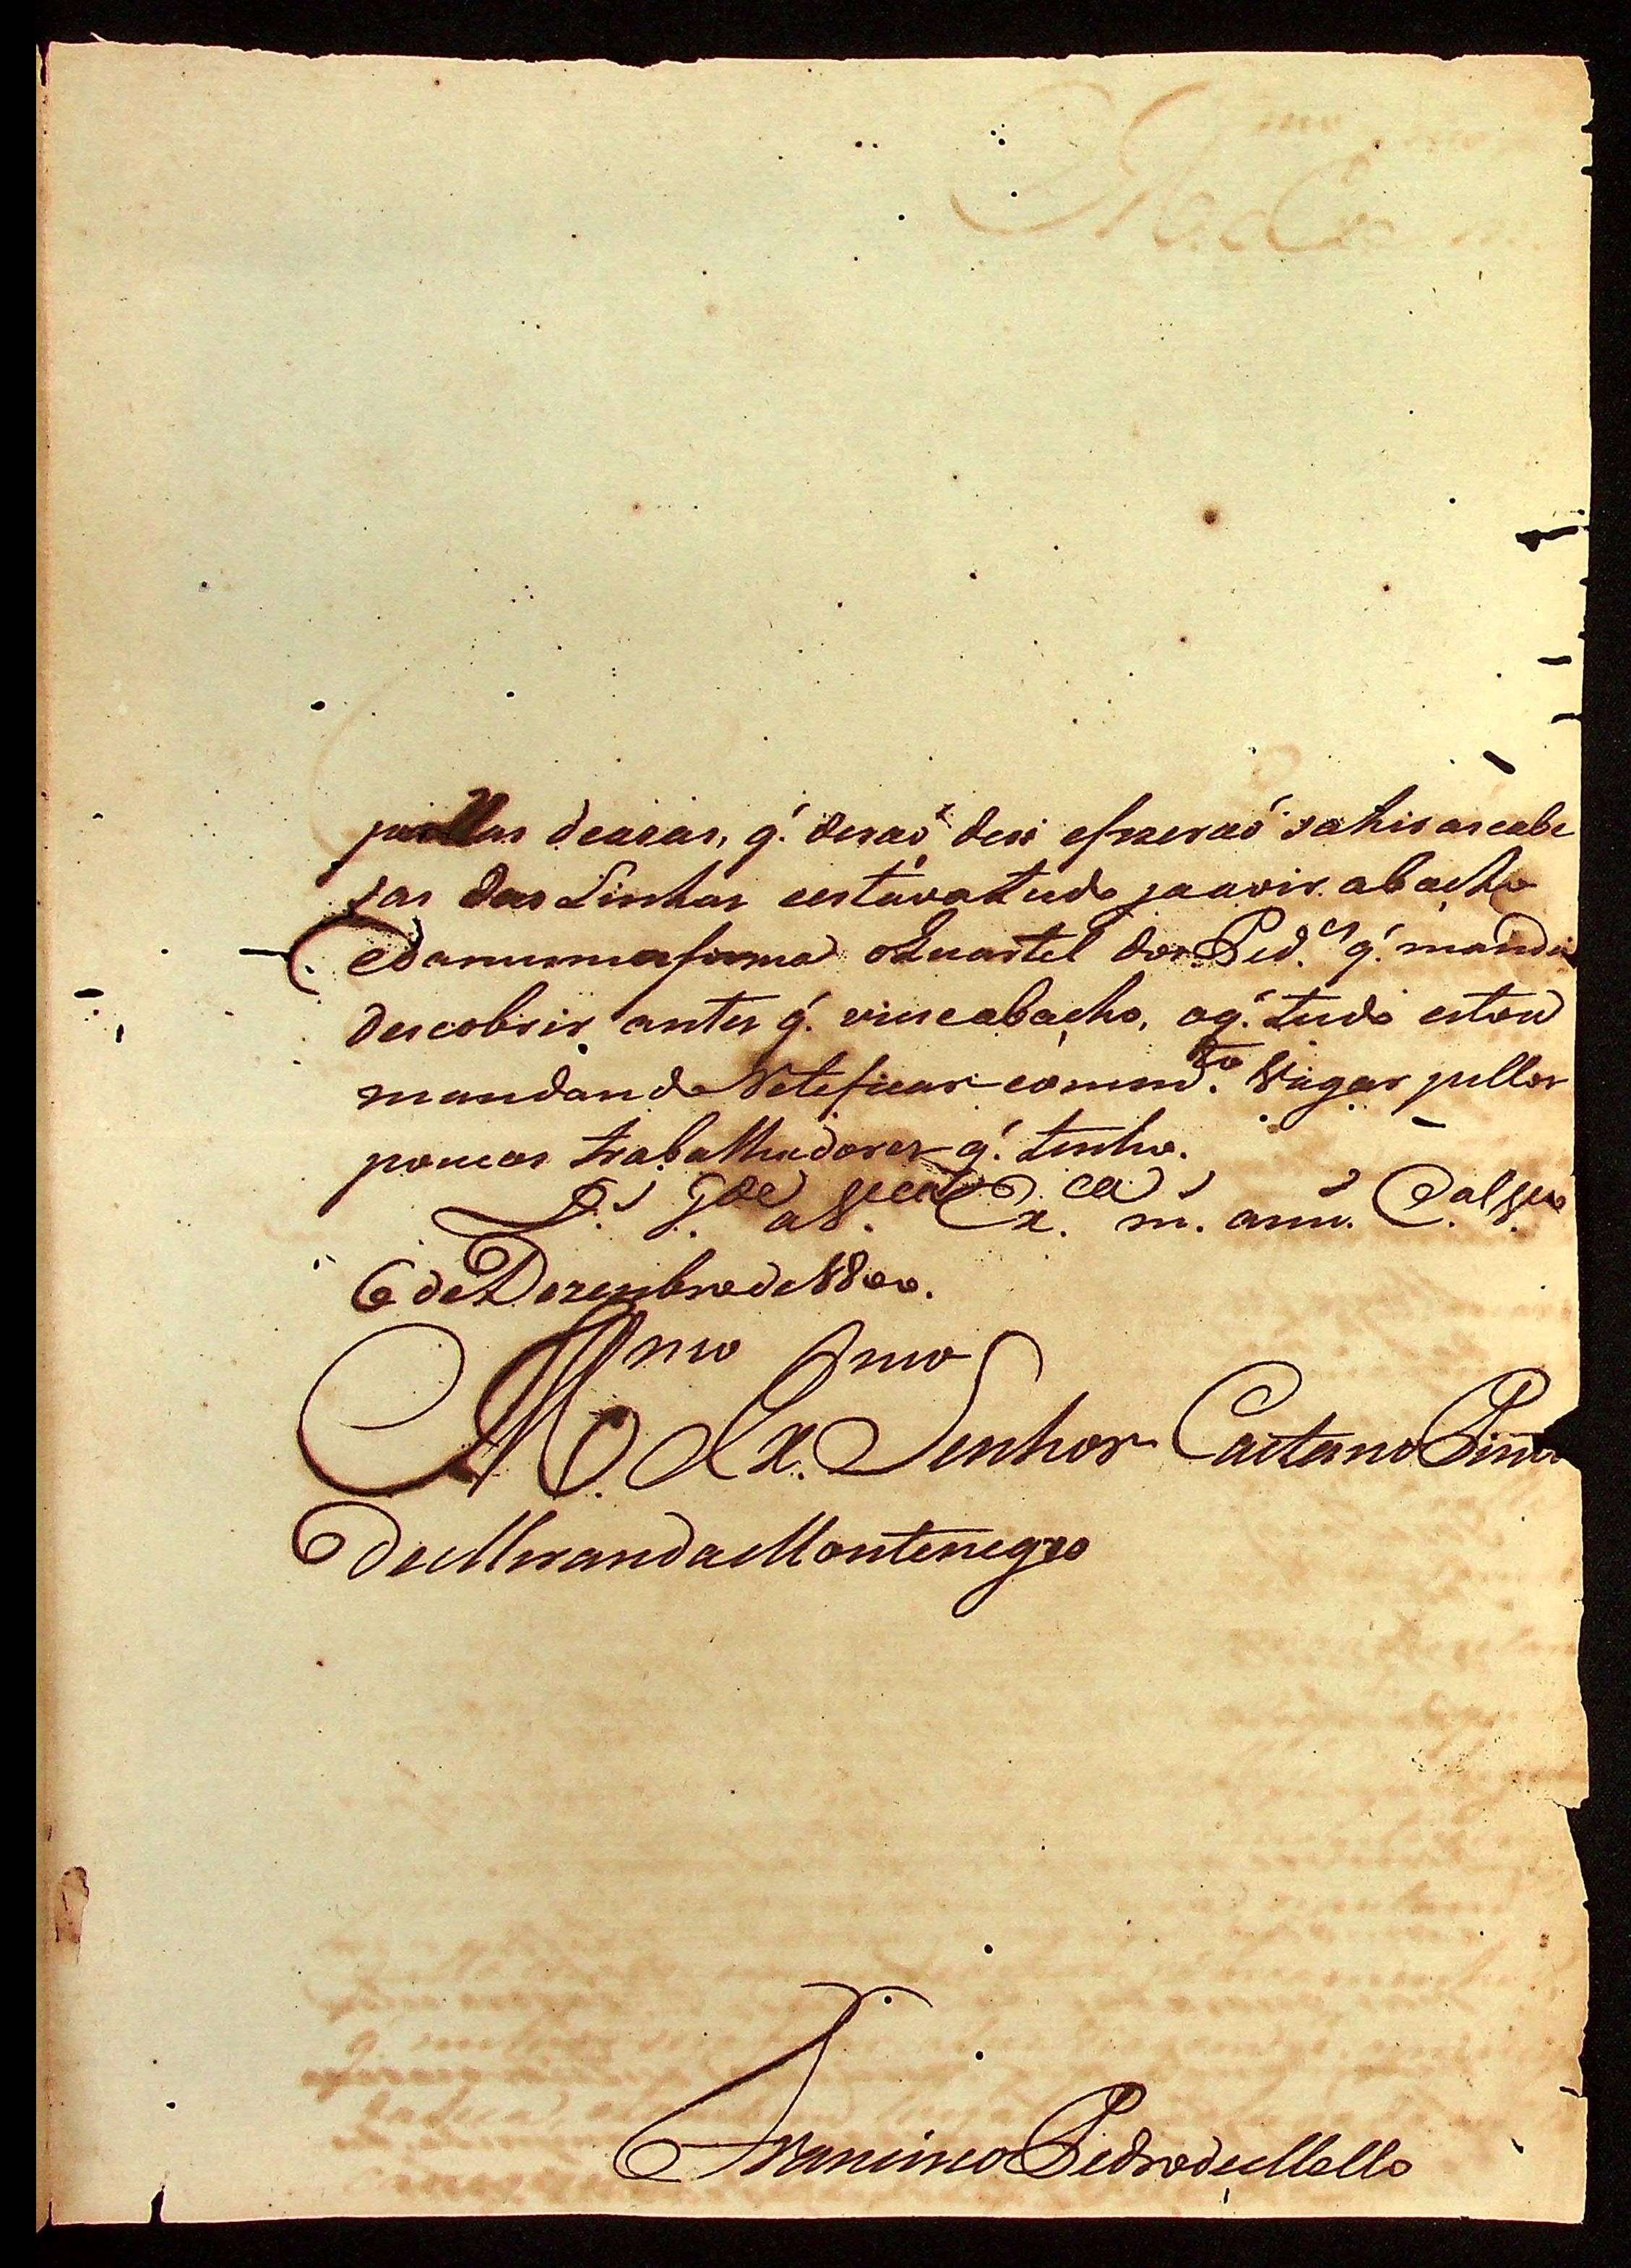 pellas deazas, q̃. deraó desi efizeraó sahir as cabe
sas das Linhas eestava tudo ja avir abacho
Edamesma forma oQuartel dos Ped.es q̃. mandei
descobrir antes q̃. viese abacho, oq̃. tudo estou
mandando Reteficar com m.to Vagar pellos
poucos trabalhadores q̃. tenho.
D.s g.de a V. Ex.ca m. ann.s
6 de Dezembro de 1800.
Ill.mo Ex.mo Senhor Caetano Pinto
De Miranda Montenegro
Francisco Pedro de Mello